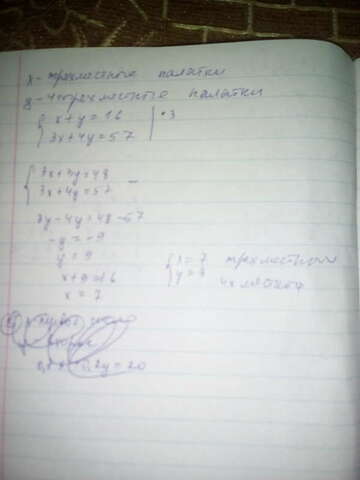 x - трехместные палатки
y - четырехместные палатки
{ x+y=16 | ·3
3x+4y=57
{ 3x+3y=48
3x+4y=57 -
3y-4y=48-57
-y=-9
y=9
x+9=16
x=7
{ x=7 трехместных
y=9 4х местных
0,2y=20